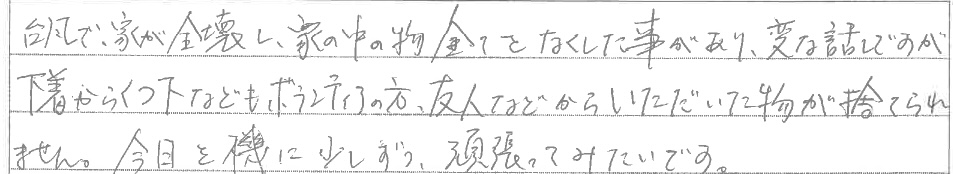 台風で、家が全壊し、家の中の物全てをなくした事があり、変な話しですが
下着からくつ下などもボランティアの方、友人などからいただいた物が捨てられ
ません。今日を機に少しずつ、頑張ってみたいです。